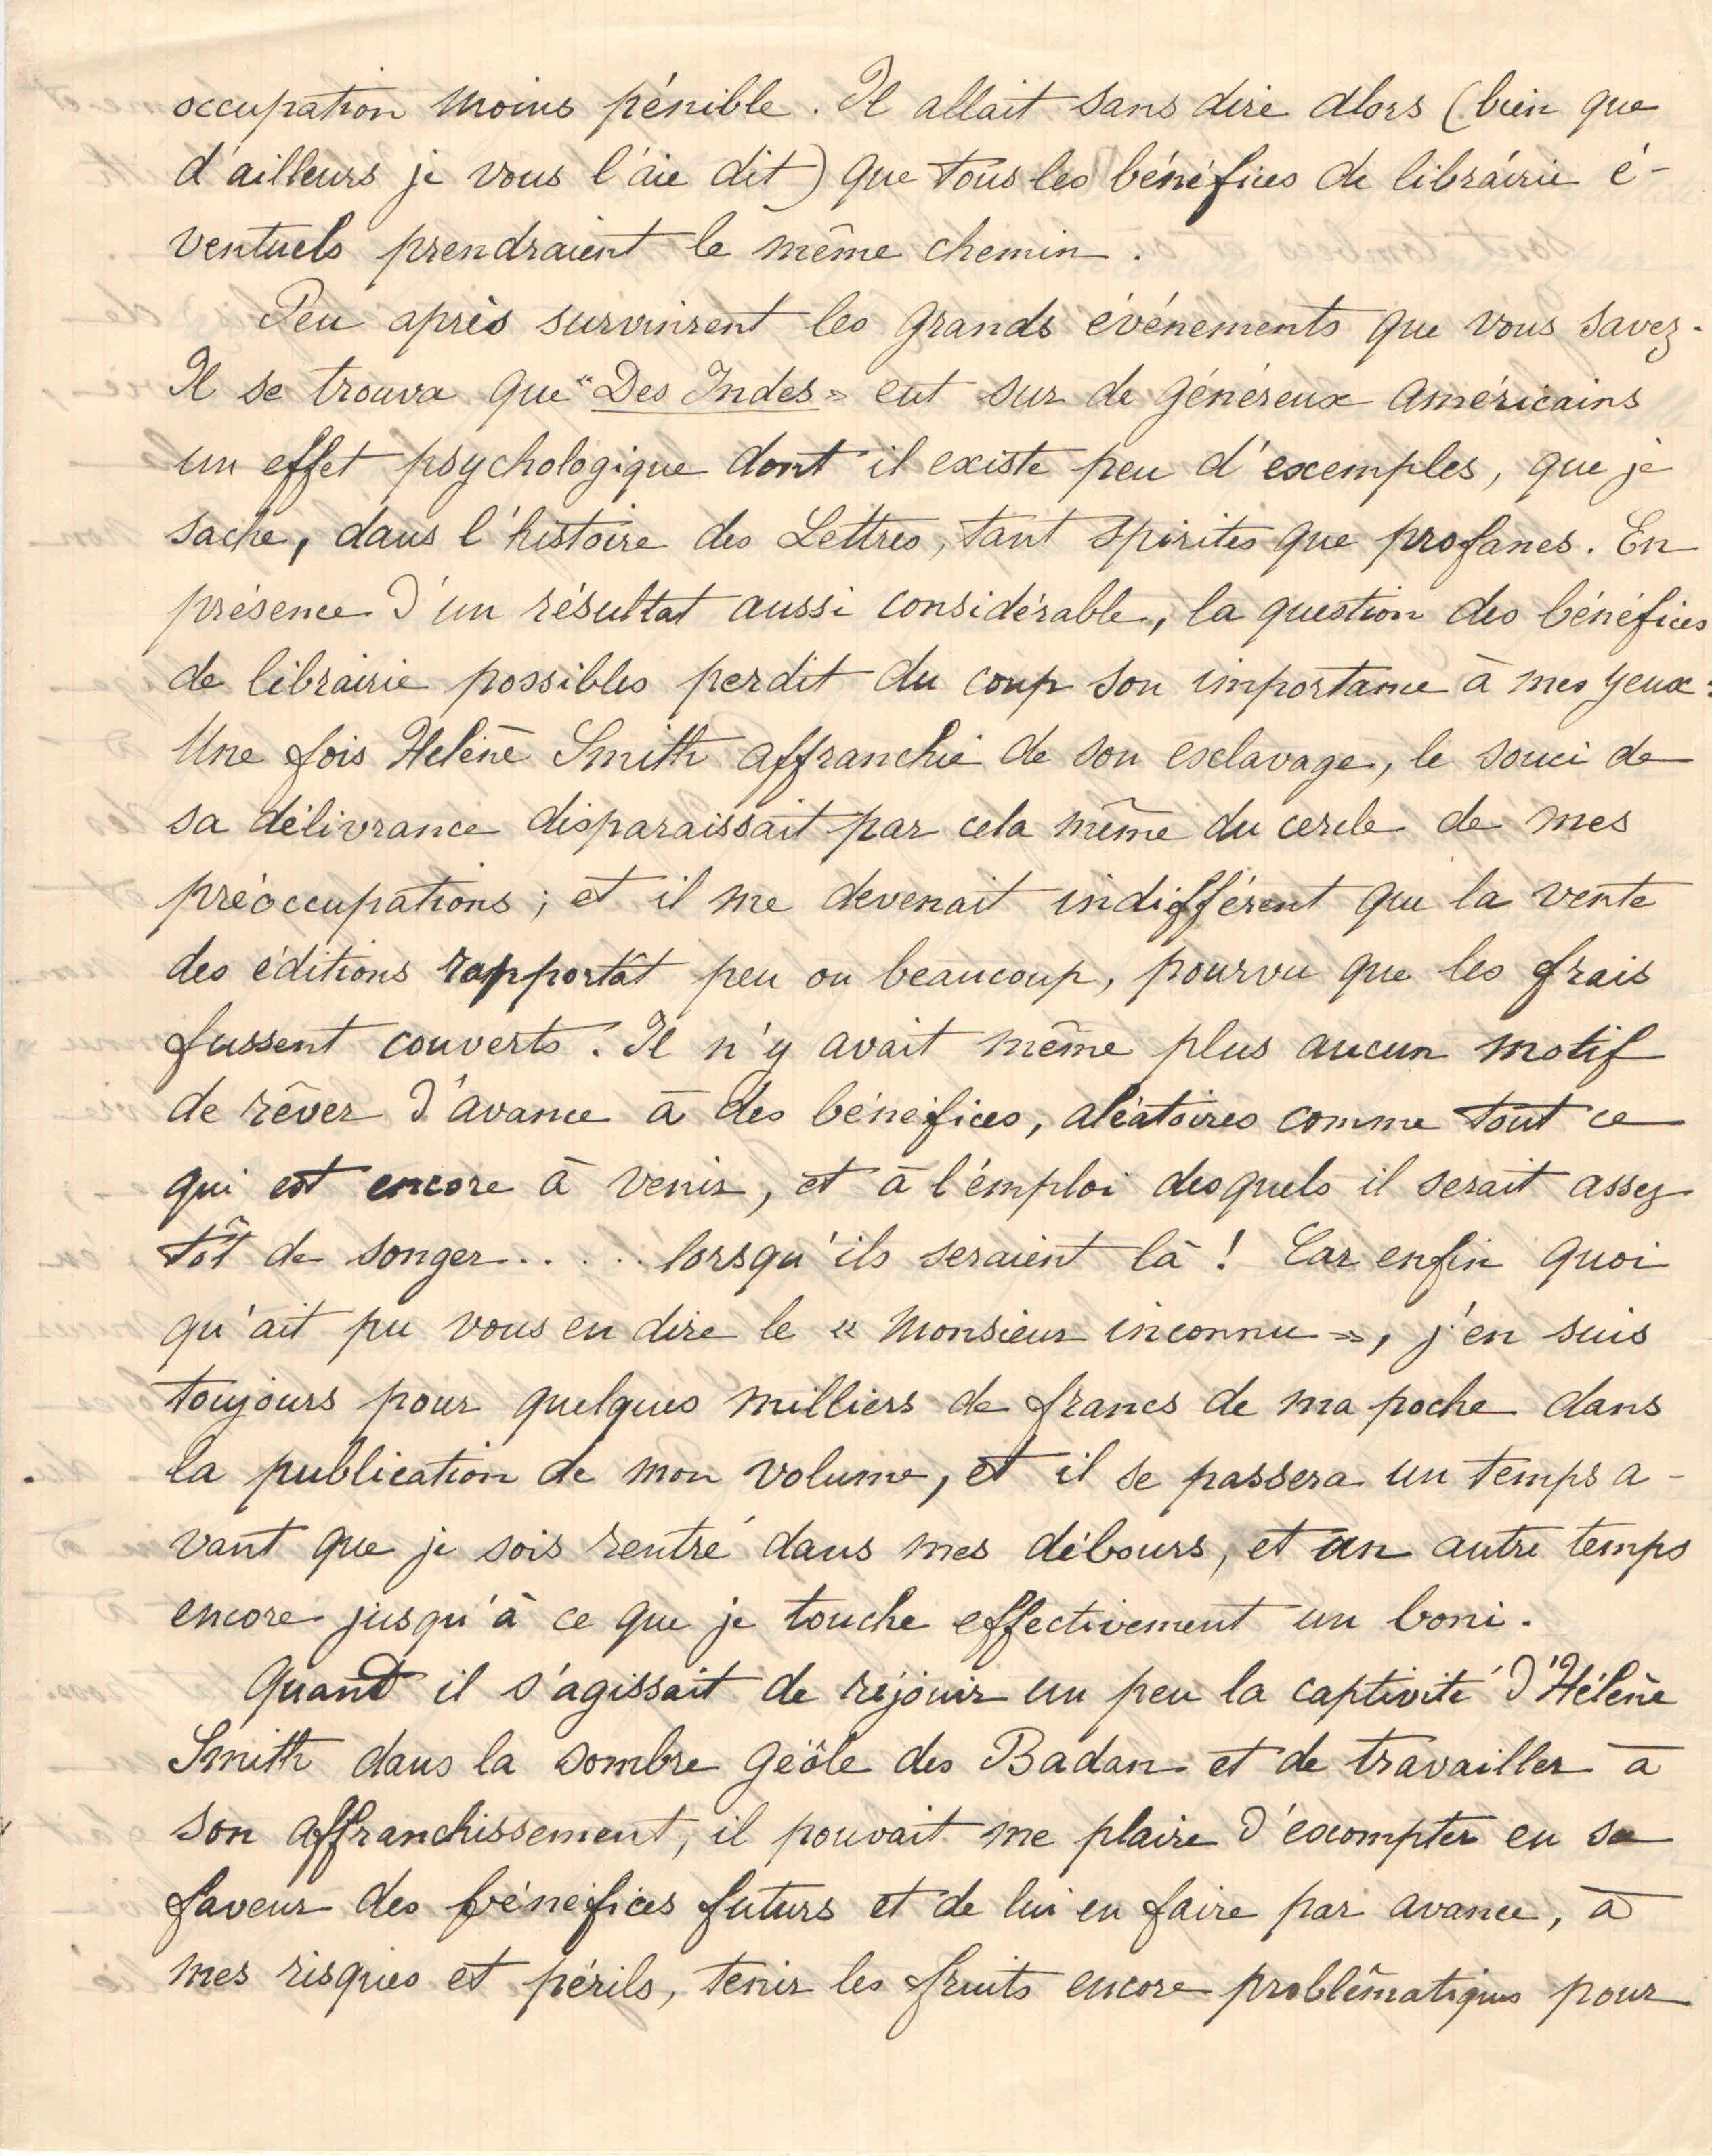 occupation moins pénible. Il allait sans dire alors (bien que
d'ailleurs je vous l'aie dit) que tous les bénéfices de librairie é-
ventuels prendraient le même chemin.
Peu après survinrent les grands événements que vous savez.
Il se trouva que « Des Indes » eut sur de généreux américains
un effet psychologique dont il existe peu d'exemples, que je
sache, dans l'histoire des Lettres, tant spirites que profanes. En
présence d'un résultat aussi considérable, la question des bénéfices
de librairie possibles perdit du coup son importance à mes yeux:
Une fois Hélène Smith affranchie de son esclavage, le souci de
sa délivrance disparaissait par cela même du cercle de mes
préoccupations; et il me devenait indifférent que la vente
des éditions rapportât peu ou beaucoup, pourvu que les frais
fussent couverts. Il n'y avait même plus aucun motif
de rêver d'avance à des bénéfices, aléatoires comme tout ce
qui est encore à venir, et à l'emploi desquels il serait assez
tôt de songer..... lorsqu'ils seraient là! Car enfin quoi
qu'ait pu vous en dire le « Monsieur inconnu », j'en suis
toujours pour quelques milliers de francs de ma poche dans
la publication de mon volume, et il se passera un temps a-
vant que je sois rentré dans mes débours, et un autre temps
encore jusqu'à ce que je touche effectivement un boni.
Quand il s'agissait de réjouir un peu la captivité d'Hélène
Smith dans la sombre geôle des Badan et de travailler à
son affranchissement, il pouvait me plaire d'escompter en sa
faveur des bénéfices futurs et de lui en faire par avance, à
mes risques et périls, tenir les fruits encore problématiques pour